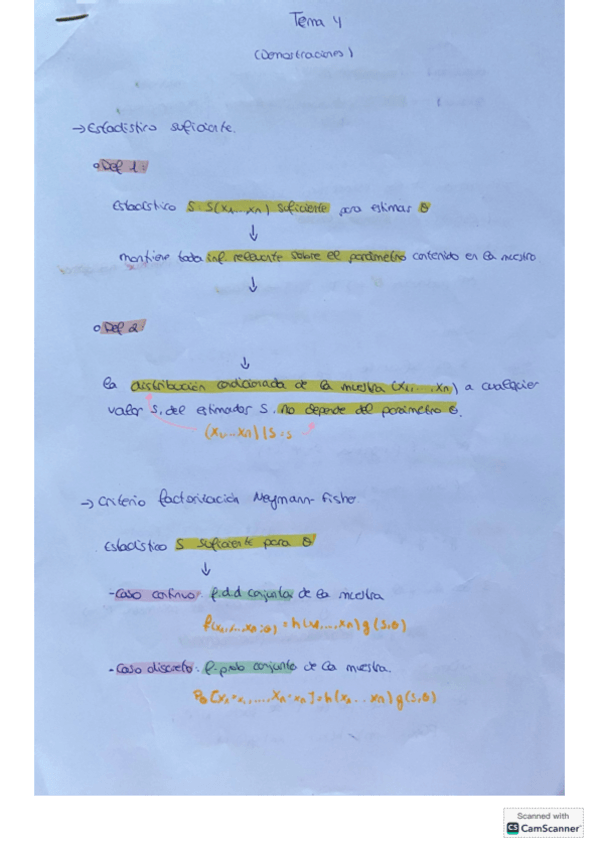 Tema 4
(Demostraciones)
→ Estadístico suficiente.
o Def 1:
Estadístico S: S(x1...xn) suficiente para estimar θ
↓
mantiene toda inf. relevante sobre el parámetro contenido en la muestra
↓
o Def 2
↓
la distribución condicionada de la muestra (x1,...,xn) a cualquier
valor s, del estimador S, no depende del parámetro θ.
(x1,...xn) | S = s
→ Criterio factorización Neymann-Fisher
Estadístico S suficiente para θ
↓
- Caso continuo: f.d.d conjunta de la muestra
f(x1,...,xn; θ) = h(x1,...,xn) g(s,θ)
- Caso discreto: f. prob conjunta de la muestra.
Pθ [X1=x1,...., Xn=xn] = h(x1...xn) g(s,θ)
Scanned with
CS CamScanner